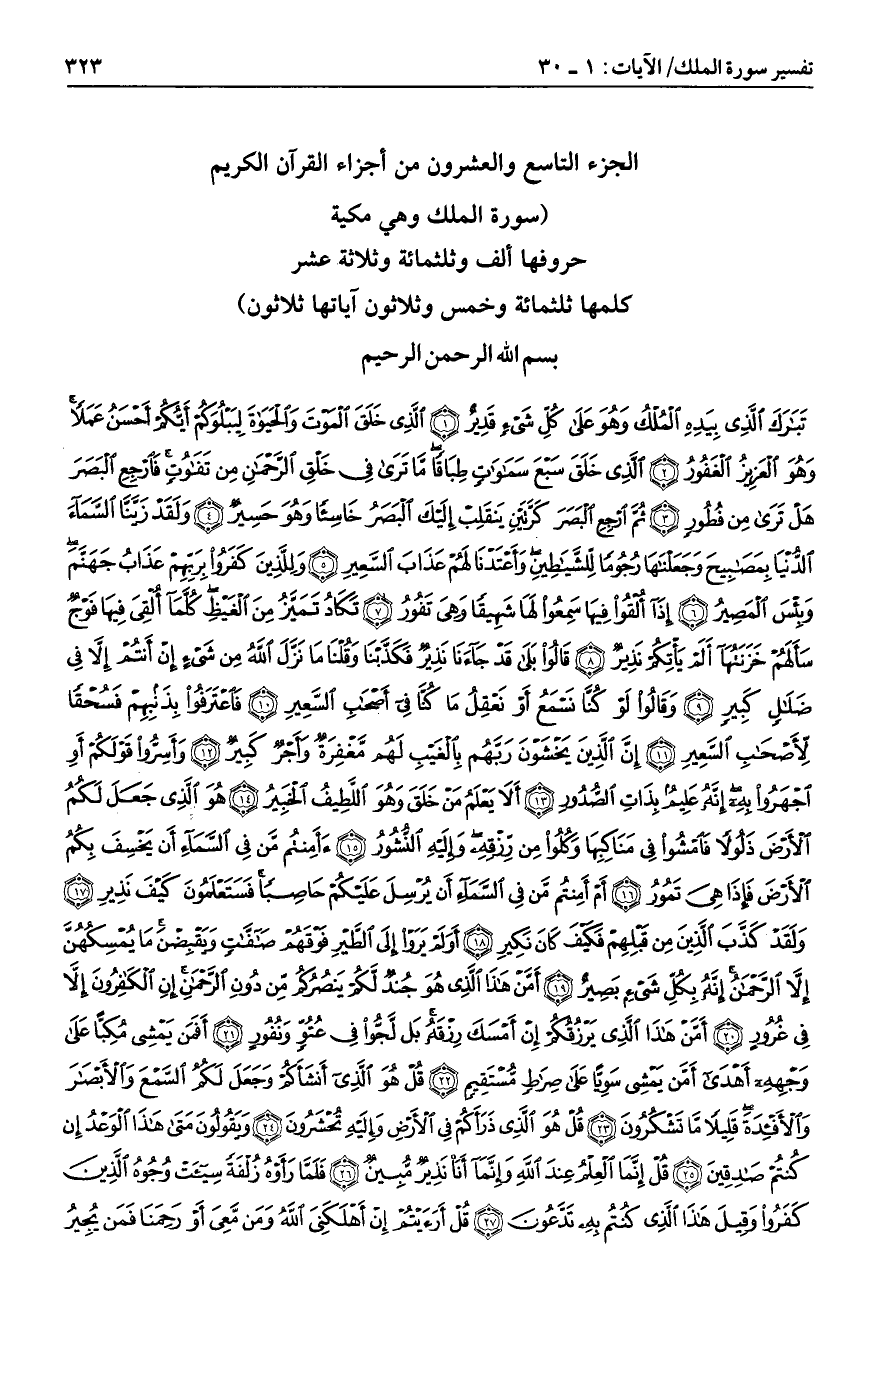 تفسير سورة الملك/ الآيات: ١ - ٣٠
٣٢٣
الجزء التاسع والعشرون من أجزاء القرآن الكريم
(سورة الملك وهي مكية
حروفها ألف وثلثمائة وثلاثة عشر
كلمها ثلثمائة وخمس وثلاثون آياتها ثلاثون)
بسم الله الرحمن الرحيم
تَبَٰرَكَ ٱلَّذِى بِيَدِهِ ٱلْمُلْكُ وَهُوَ عَلَىٰ كُلِّ شَىْءٍ قَدِيرٌ ﴿١﴾ ٱلَّذِى خَلَقَ ٱلْمَوْتَ وَٱلْحَيَوٰةَ لِيَبْلُوَكُمْ أَيُّكُمْ أَحْسَنُ عَمَلًا ۚ
وَهُوَ ٱلْعَزِيزُ ٱلْغَفُورُ ﴿٢﴾ ٱلَّذِى خَلَقَ سَبْعَ سَمَٰوَٰتٍ طِبَاقًا ۖ مَّا تَرَىٰ فِى خَلْقِ ٱلرَّحْمَٰنِ مِن تَفَٰوُتٍ ۖ فَٱرْجِعِ ٱلْبَصَرَ
هَلْ تَرَىٰ مِن فُطُورٍ ﴿٣﴾ ثُمَّ ٱرْجِعِ ٱلْبَصَرَ كَرَّتَيْنِ يَنقَلِبْ إِلَيْكَ ٱلْبَصَرُ خَاسِئًا وَهُوَ حَسِيرٌ ﴿٤﴾ وَلَقَدْ زَيَّنَّا ٱلسَّمَآءَ
ٱلدُّنْيَا بِمَصَٰبِيحَ وَجَعَلْنَٰهَا رُجُومًا لِّلشَّيَٰطِينِ ۖ وَأَعْتَدْنَا لَهُمْ عَذَابَ ٱلسَّعِيرِ ﴿٥﴾ وَلِلَّذِينَ كَفَرُوا۟ بِرَبِّهِمْ عَذَابُ جَهَنَّمَ ۖ
وَبِئْسَ ٱلْمَصِيرُ ﴿٦﴾ إِذَآ أُلْقُوا۟ فِيهَا سَمِعُوا۟ لَهَا شَهِيقًا وَهِىَ تَفُورُ ﴿٧﴾ تَكَادُ تَمَيَّزُ مِنَ ٱلْغَيْظِ ۖ كُلَّمَآ أُلْقِىَ فِيهَا فَوْجٌ
سَأَلَهُمْ خَزَنَتُهَآ أَلَمْ يَأْتِكُمْ نَذِيرٌ ﴿٨﴾ قَالُوا۟ بَلَىٰ قَدْ جَآءَنَا نَذِيرٌ فَكَذَّبْنَا وَقُلْنَا مَا نَزَّلَ ٱللَّهُ مِن شَىْءٍ إِنْ أَنتُمْ إِلَّا فِى
ضَلَٰلٍ كَبِيرٍ ﴿٩﴾ وَقَالُوا۟ لَوْ كُنَّا نَسْمَعُ أَوْ نَعْقِلُ مَا كُنَّا فِىٓ أَصْحَٰبِ ٱلسَّعِيرِ ﴿١٠﴾ فَٱعْتَرَفُوا۟ بِذَنۢبِهِمْ فَسُحْقًا
لِّأَصْحَٰبِ ٱلسَّعِيرِ ﴿١١﴾ إِنَّ ٱلَّذِينَ يَخْشَوْنَ رَبَّهُم بِٱلْغَيْبِ لَهُم مَّغْفِرَةٌ وَأَجْرٌ كَبِيرٌ ﴿١٢﴾ وَأَسِرُّوا۟ قَوْلَكُمْ أَوِ
ٱجْهَرُوا۟ بِهِۦٓ ۖ إِنَّهُۥ عَلِيمٌۢ بِذَاتِ ٱلصُّدُورِ ﴿١٣﴾ أَلَا يَعْلَمُ مَنْ خَلَقَ وَهُوَ ٱللَّطِيفُ ٱلْخَبِيرُ ﴿١٤﴾ هُوَ ٱلَّذِى جَعَلَ لَكُمُ
ٱلْأَرْضَ ذَلُولًا فَٱمْشُوا۟ فِى مَنَاكِبِهَا وَكُلُوا۟ مِن رِّزْقِهِۦ ۖ وَإِلَيْهِ ٱلنُّشُورُ ﴿١٥﴾ ءَأَمِنتُم مَّن فِى ٱلسَّمَآءِ أَن يَخْسِفَ بِكُمُ
ٱلْأَرْضَ فَإِذَا هِىَ تَمُورُ ﴿١٦﴾ أَمْ أَمِنتُم مَّن فِى ٱلسَّمَآءِ أَن يُرْسِلَ عَلَيْكُمْ حَاصِبًا ۖ فَسَتَعْلَمُونَ كَيْفَ نَذِيرِ ﴿١٧﴾
وَلَقَدْ كَذَّبَ ٱلَّذِينَ مِن قَبْلِهِمْ فَكَيْفَ كَانَ نَكِيرِ ﴿١٨﴾ أَوَلَمْ يَرَوْا۟ إِلَى ٱلطَّيْرِ فَوْقَهُمْ صَٰٓفَّٰتٍ وَيَقْبِضْنَ ۚ مَا يُمْسِكُهُنَّ
إِلَّا ٱلرَّحْمَٰنُ ۚ إِنَّهُۥ بِكُلِّ شَىْءٍۭ بَصِيرٌ ﴿١٩﴾ أَمَّنْ هَٰذَا ٱلَّذِى هُوَ جُندٌ لَّكُمْ يَنصُرُكُم مِّن دُونِ ٱلرَّحْمَٰنِ ۚ إِنِ ٱلْكَٰفِرُونَ إِلَّا
فِى غُرُورٍ ﴿٢٠﴾ أَمَّنْ هَٰذَا ٱلَّذِى يَرْزُقُكُمْ إِنْ أَمْسَكَ رِزْقَهُۥ ۚ بَل لَّجُّوا۟ فِى عُتُوٍّ وَنُفُورٍ ﴿٢١﴾ أَفَمَن يَمْشِى مُكِبًّا عَلَىٰ
وَجْهِهِۦٓ أَهْدَىٰٓ أَمَّن يَمْشِى سَوِيًّا عَلَىٰ صِرَٰطٍ مُّسْتَقِيمٍ ﴿٢٢﴾ قُلْ هُوَ ٱلَّذِىٓ أَنشَأَكُمْ وَجَعَلَ لَكُمُ ٱلسَّمْعَ وَٱلْأَبْصَٰرَ
وَٱلْأَفْـِٔدَةَ ۖ قَلِيلًا مَّا تَشْكُرُونَ ﴿٢٣﴾ قُلْ هُوَ ٱلَّذِى ذَرَأَكُمْ فِى ٱلْأَرْضِ وَإِلَيْهِ تُحْشَرُونَ ﴿٢٤﴾ وَيَقُولُونَ مَتَىٰ هَٰذَا ٱلْوَعْدُ إِن
كُنتُمْ صَٰدِقِينَ ﴿٢٥﴾ قُلْ إِنَّمَا ٱلْعِلْمُ عِندَ ٱللَّهِ وَإِنَّمَآ أَنَا۠ نَذِيرٌ مُّبِينٌ ﴿٢٦﴾ فَلَمَّا رَأَوْهُ زُلْفَةً سِيٓـَٔتْ وُجُوهُ ٱلَّذِينَ
كَفَرُوا۟ وَقِيلَ هَٰذَا ٱلَّذِى كُنتُم بِهِۦ تَدَّعُونَ ﴿٢٧﴾ قُلْ أَرَءَيْتُمْ إِنْ أَهْلَكَنِىَ ٱللَّهُ وَمَن مَّعِىَ أَوْ رَحِمَنَا فَمَن يُجِيرُ